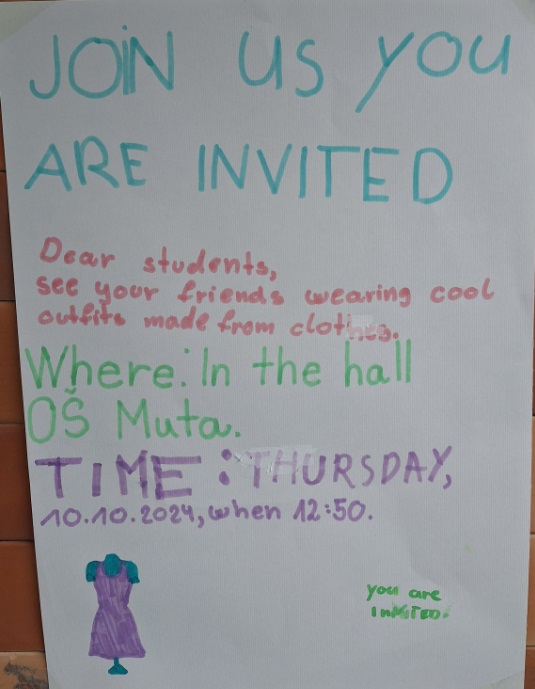 JOIN US YOU
ARE INVITED
Dear students,
see your friends wearing cool
outfits made from clothes.
Where: In the hall
OŠ Muta.
TIME: THURSDAY,
10.10.2024, when 12:50.
you are
INVITED!